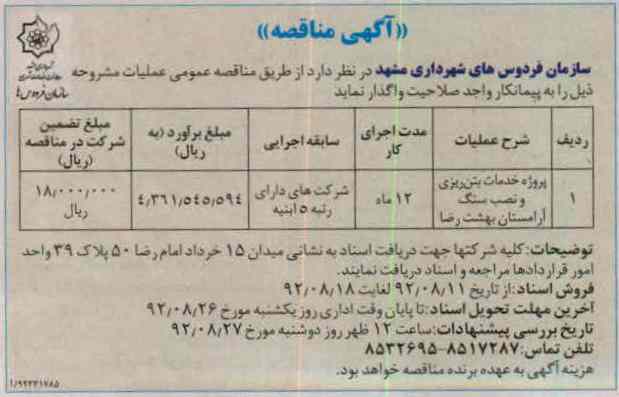 ((آگهی مناقصه))
سازمان فردوس های شهرداری مشهد در نظر دارد از طریق مناقصه عمومی عملیات مشروحه
ذیل را به پیمانکار واجد صلاحیت واگذار نماید
سازمان فردوس ها
ردیف شرح عملیات مدت اجرای کار سابقه اجرایی مبلغ برآورد (به ریال) مبلغ تضمین شرکت در مناقصه (ریال)
۱ پروژه خدمات بتن ریزی و نصب سنگ آرامستان بهشت رضا ۱۲ ماه شرکت های دارای رتبه ۵ ابنیه ۴٫۳۶۱٫۵۴۵٫۵۹۴ ۱۸٫۰۰۰٫۰۰۰ ریال
توضیحات: کلیه شرکتها جهت دریافت اسناد به نشانی میدان ۱۵ خرداد امام رضا ۵۰ پلاک ۳۹ واحد
امور قراردادها مراجعه و اسناد دریافت نمایند.
فروش اسناد: از تاریخ ۹۲٫۰۸٫۱۱ لغایت ۹۲٫۰۸٫۱۸
آخرین مهلت تحویل اسناد: تا پایان وقت اداری روز یکشنبه مورخ ۹۲٫۰۸٫۲۶
تاریخ بررسی پیشنهادات: ساعت ۱۲ ظهر روز دوشنبه مورخ ۹۲٫۰۸٫۲۷
تلفن تماس: ۸۵۱۷۲۸۷-۸۵۳۲۶۹۵
هزینه آگهی به عهده برنده مناقصه خواهد بود.
۱٫۹۲۲۳۱۷۸۵